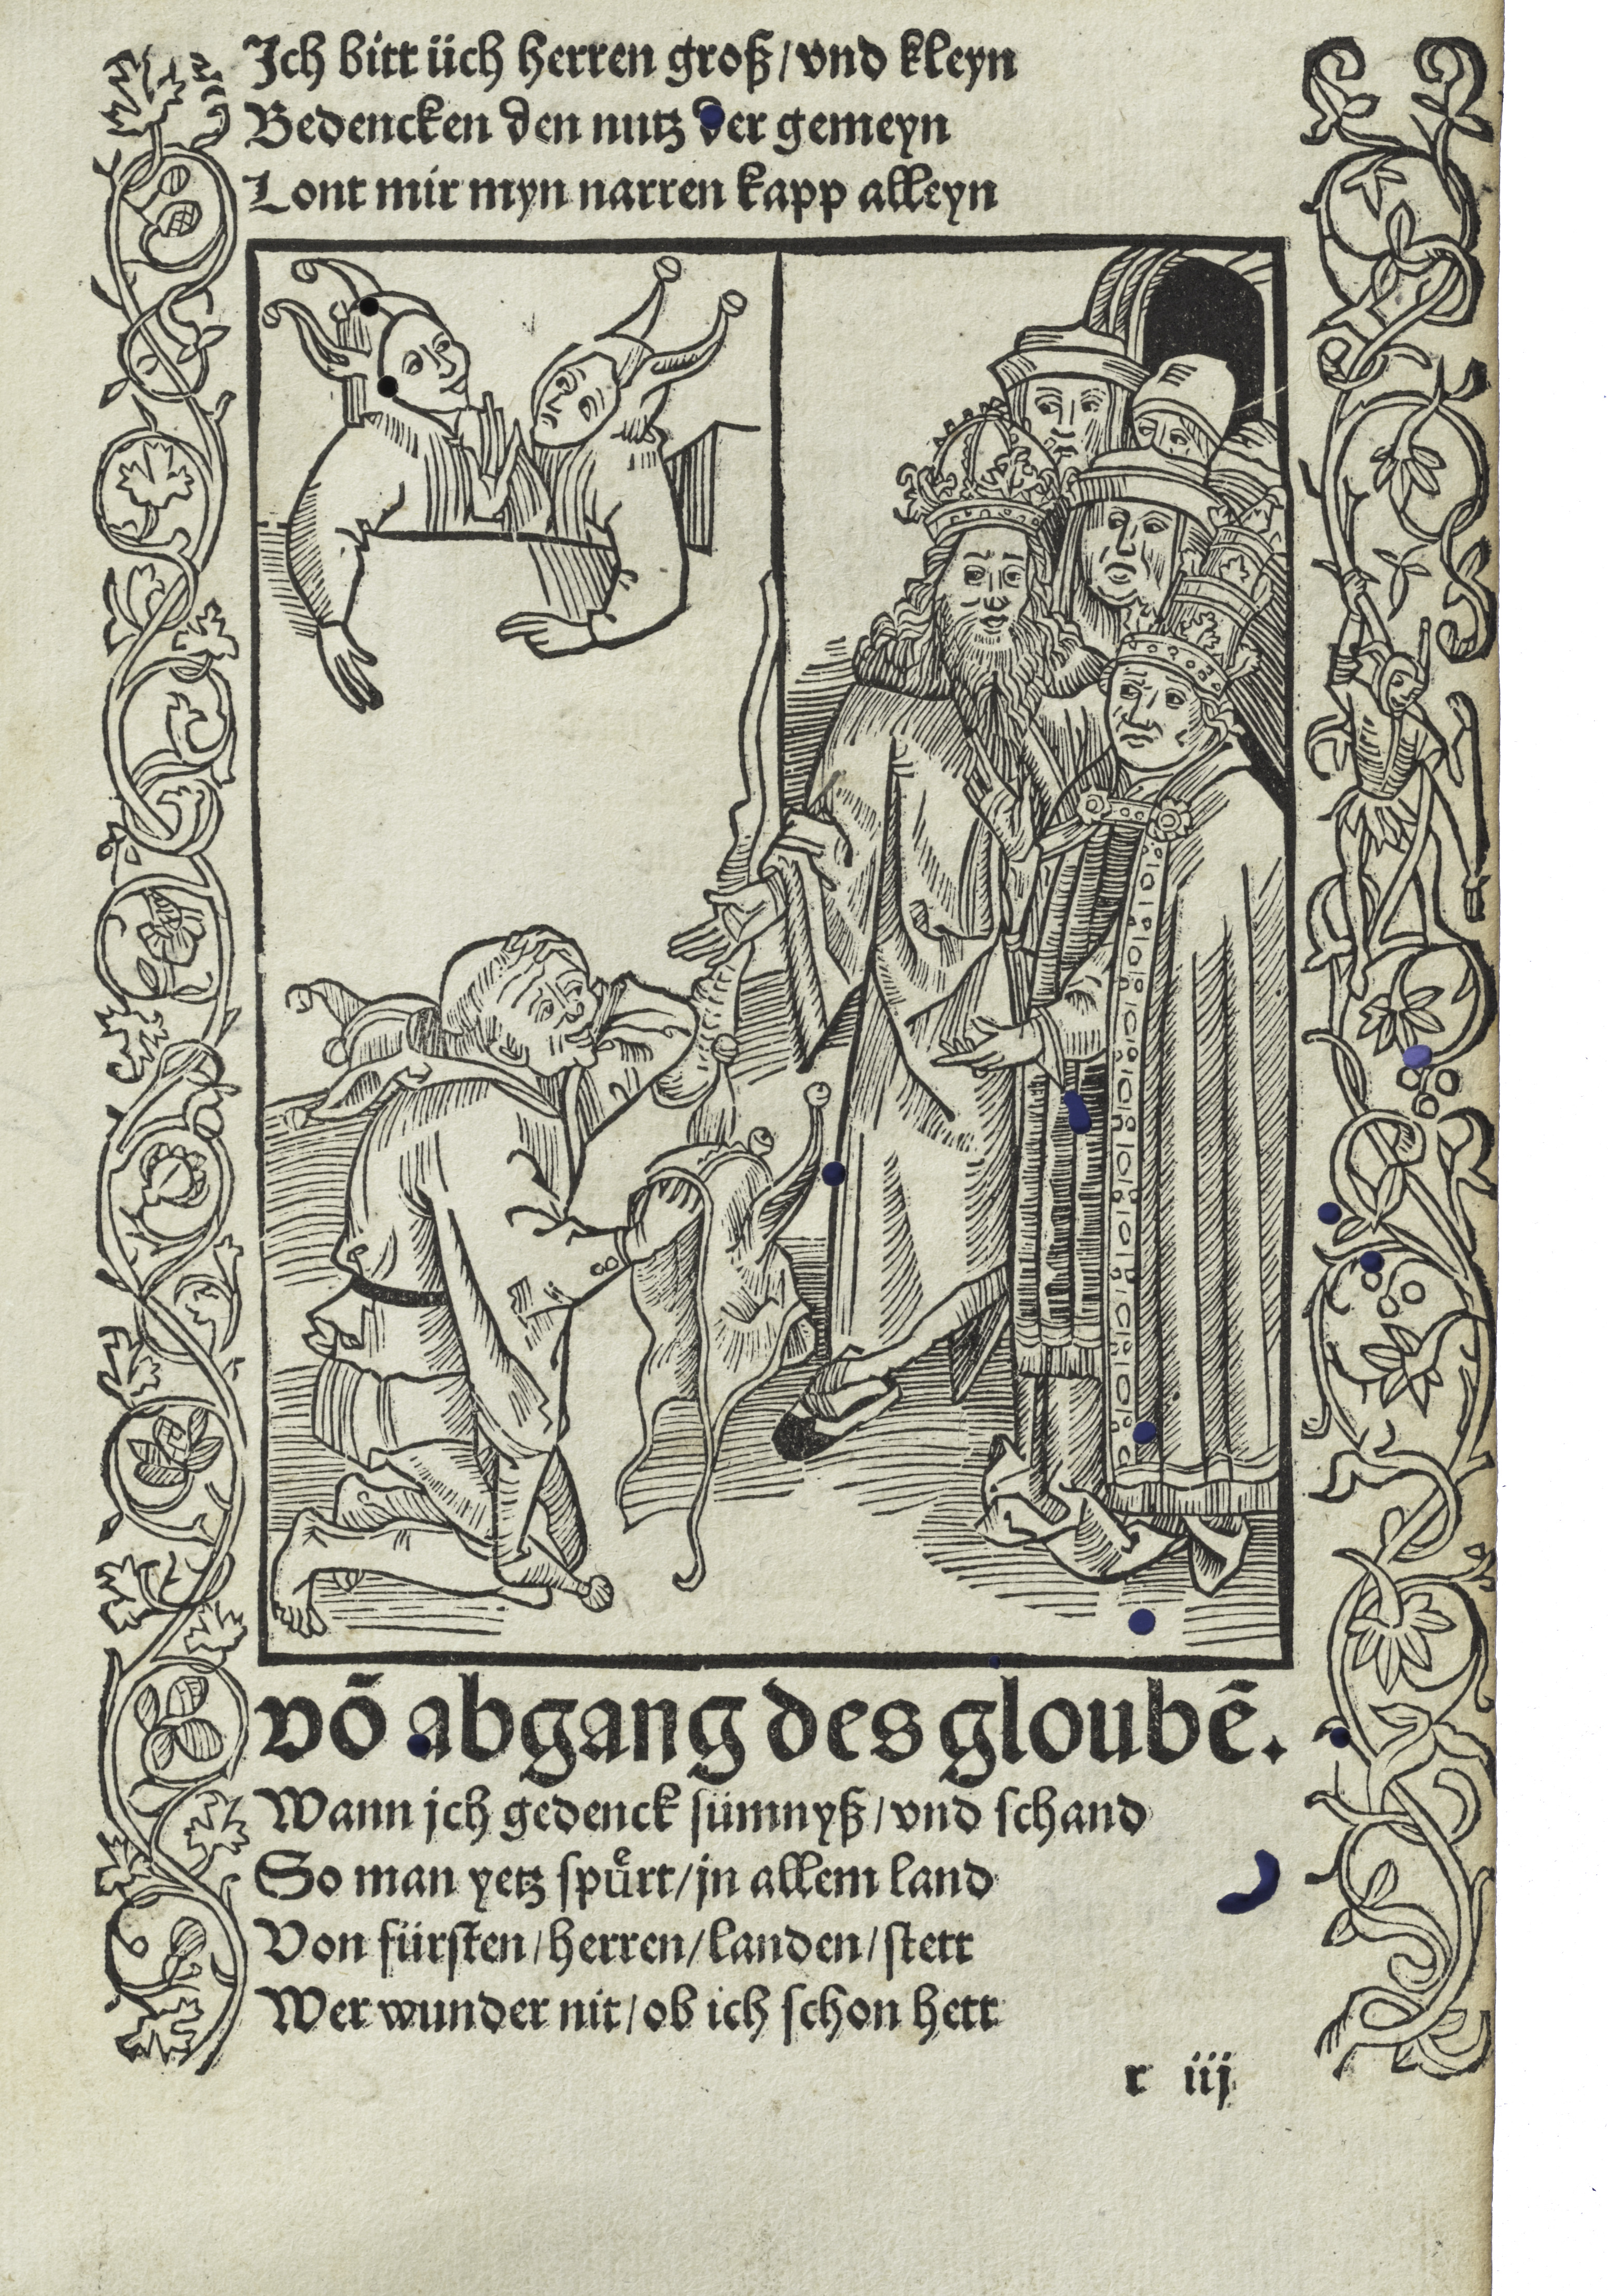 Ich bitt üch herren groß/vnd kleyn
Bedencken den nutz der gemeyn
Lont mir myn narren kapp alleyn
võ abgang des gloubẽ.
Wann jch gedenck sümnyß/vnd schand
So man yetz spuͤrt/jn allem land
Von fürsten/herren/landen/stett
Wer wunder nit/ob ich schon hett
r iij